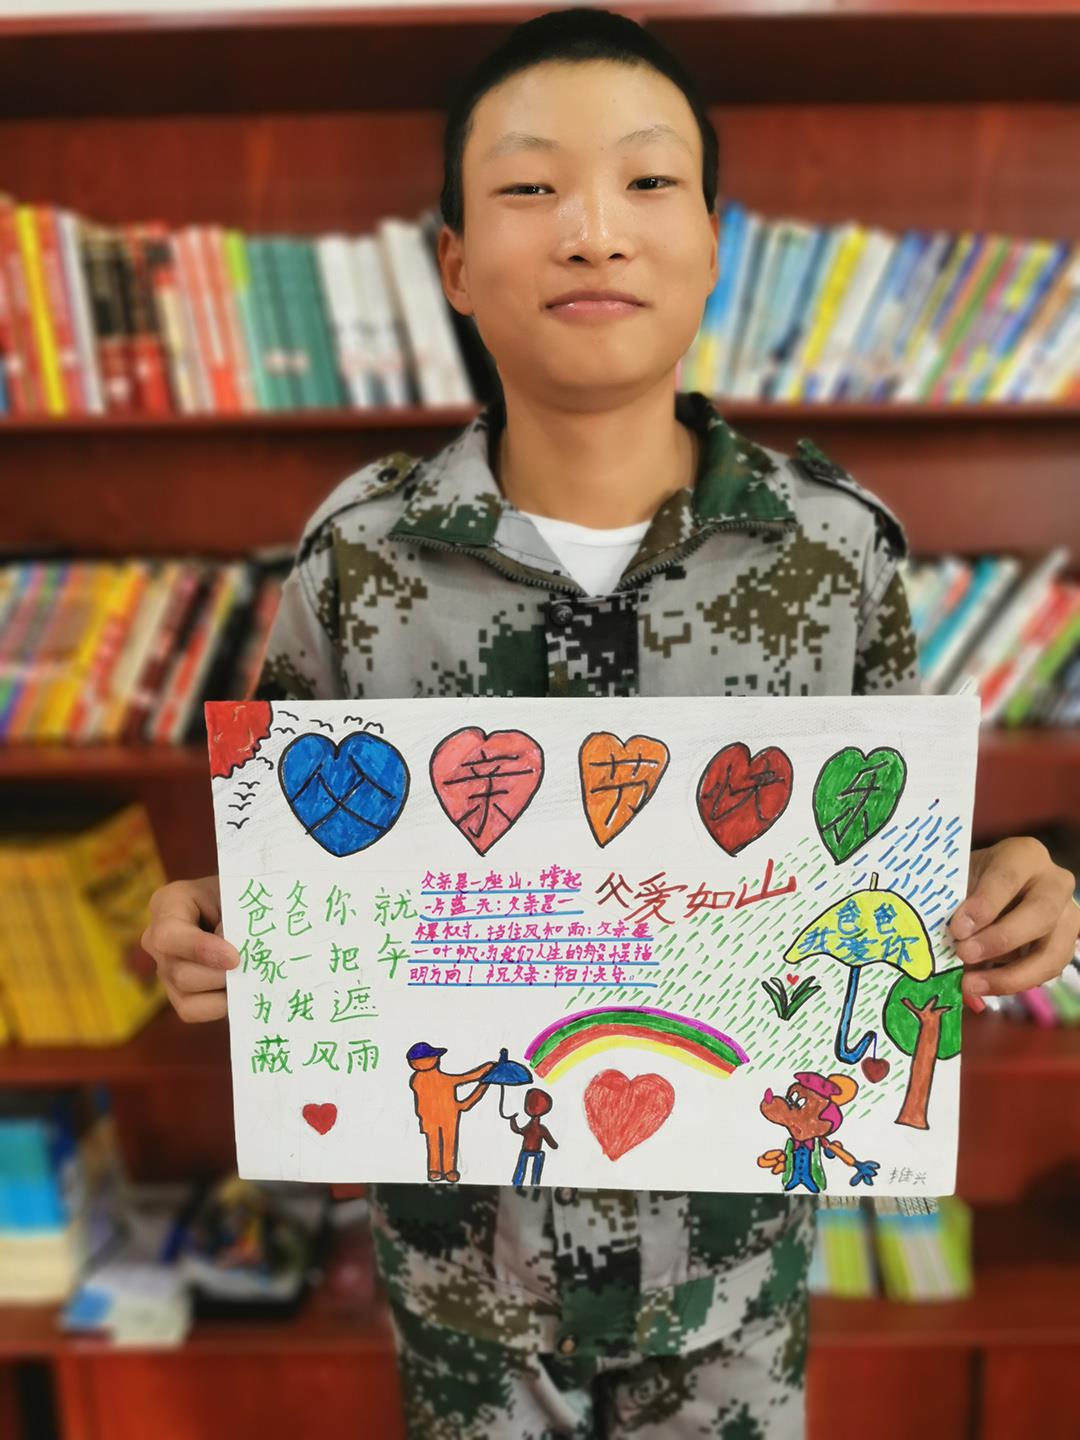 父亲节快乐
爸爸你就
像一把伞
为我遮
蔽风雨
父亲是一座山，撑起
一片蓝天；父亲是一
棵树，挡住风和雨；父亲是
一叶帆，为我们人生的船只保指
明方向！祝父亲：节日快乐。
父爱如山
爸爸
我爱你